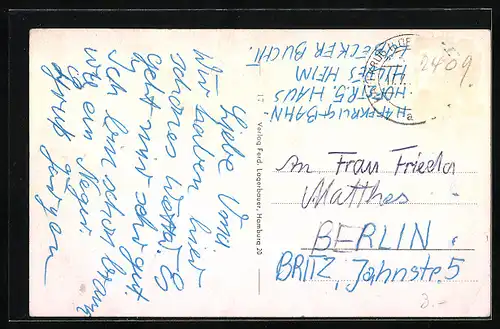 Liebe Omi
Wir haben hier
schönes Wetter. Es
geht mir sehr gut
Ich bin schon braun
wie ein Neger
Gruß
17 Verlag Ferd. Lagerbauer, Hamburg 20
HAFFKRUG-BAHN
HOFSTR. 5, HAUS
HILLES HEIM
LÜBECKER BUCHT.
a
2409
Frau Frieda
Matthes
BERLIN
BRITZ, Jahnstr. 5
3.-